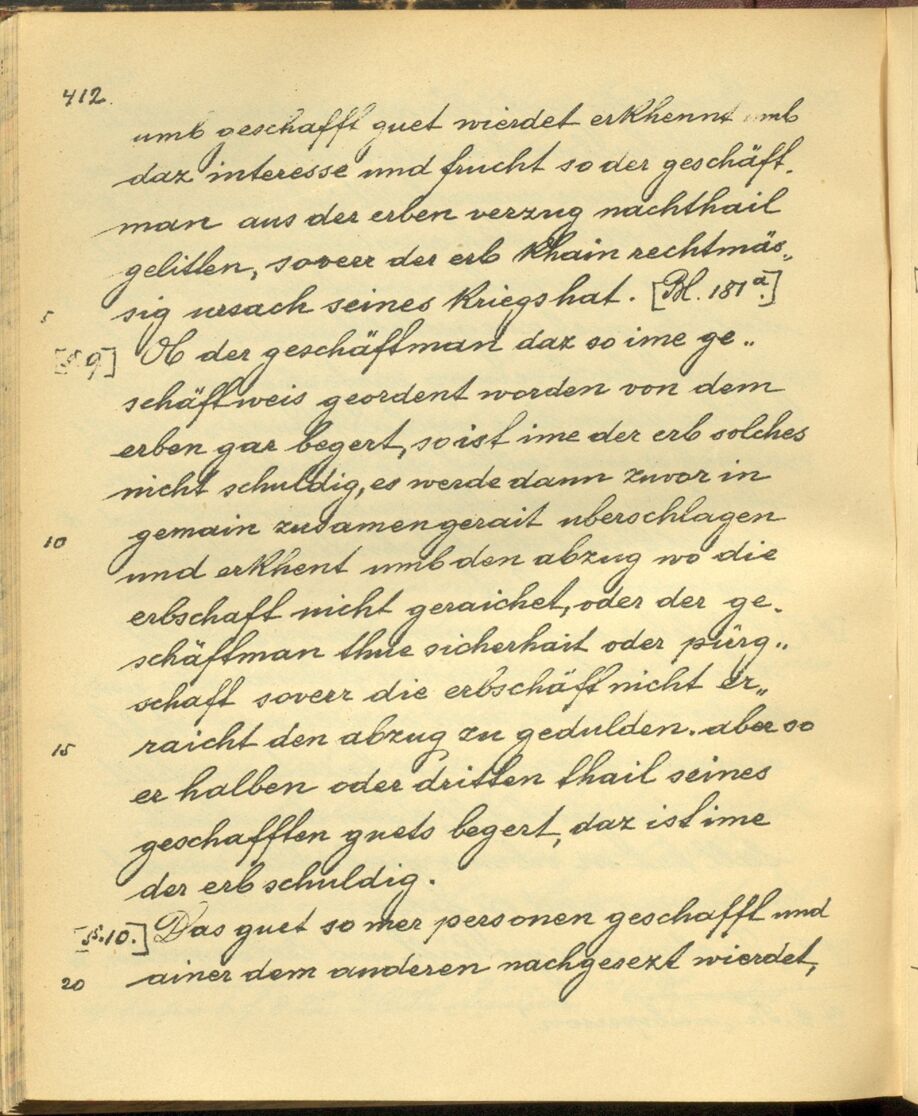 412.
umb geschafft guet wierdet erkhennt umb
daz interesse und frucht so der geschäft-
man aus der erben verzug nachthail
gelitten, soverr der erb khain rechtmäs„
5 sig ursach seines kriegs hat. [Bl. 181a.]
[§ 9] Ob der geschäftman daz so ime ge„
schäftweis geordent worden von dem
erben gar begert, so ist ime der erb solches
nicht schuldig, es werde dann zuvor in
10 gemain zusamengerait uberschlagen
und erkhent umb den abzug wo die
erbschaft nicht geraichet, oder der ge-
schäftman thue sicherhait oder pürg„
schaft soverr die erbschäft nicht er„
15 raicht den abzug zu gedulden. aber so
er halben oder dritten thail seines
geschafften guets begert, daz ist ime
der erb schuldig.
[§. 10.] Das guet so mer personen geschafft und
20 ainer dem anderen nachgesezt wierdet,